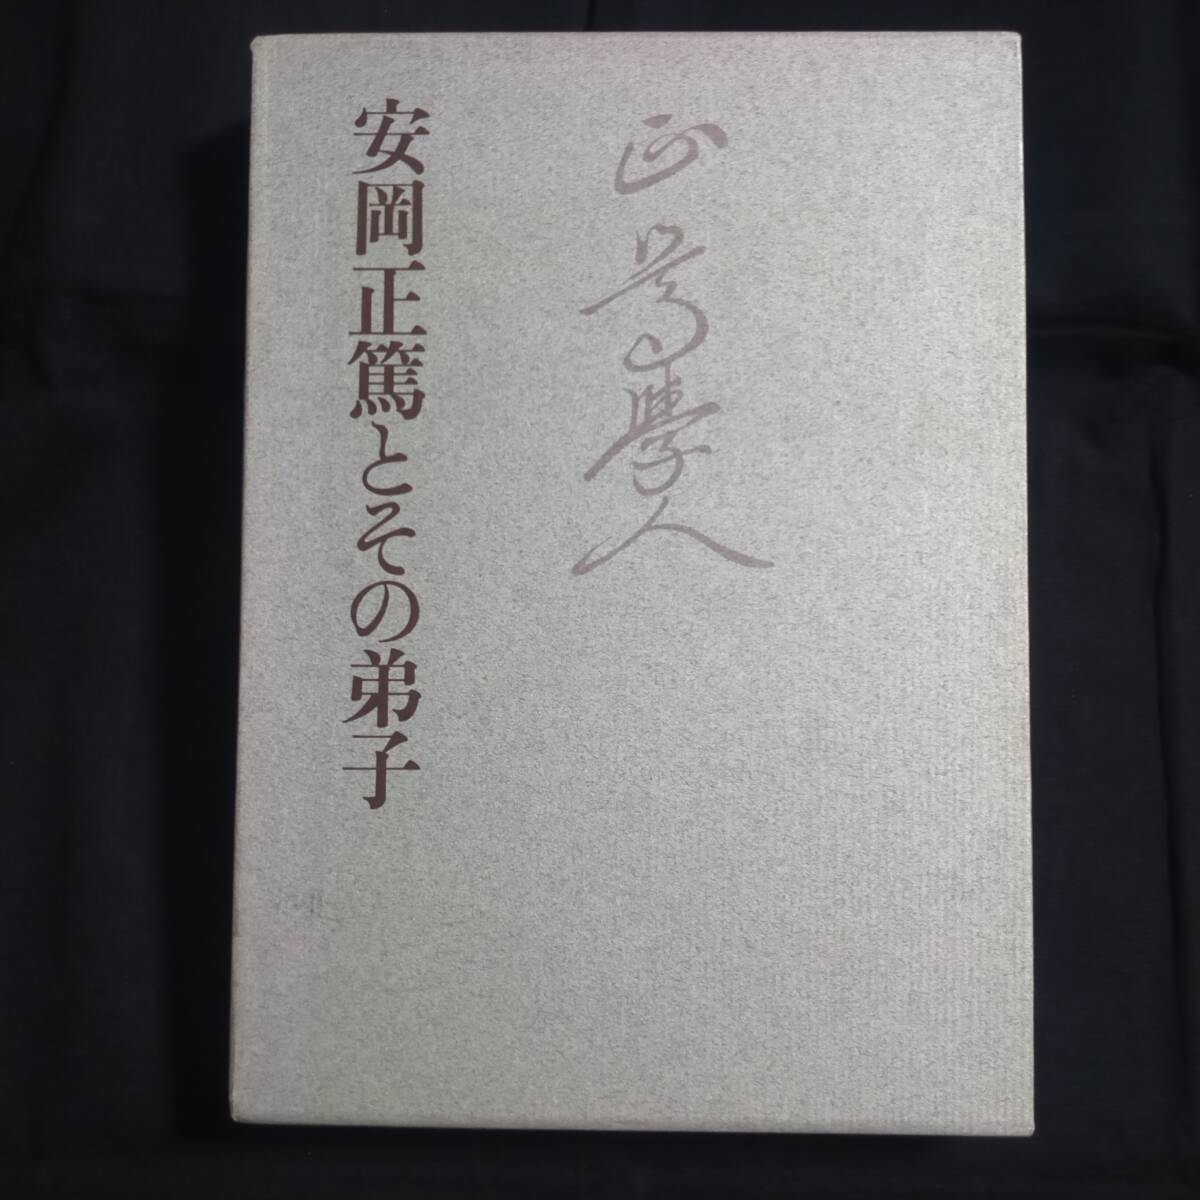 正篤學人
安岡正篤とその弟子